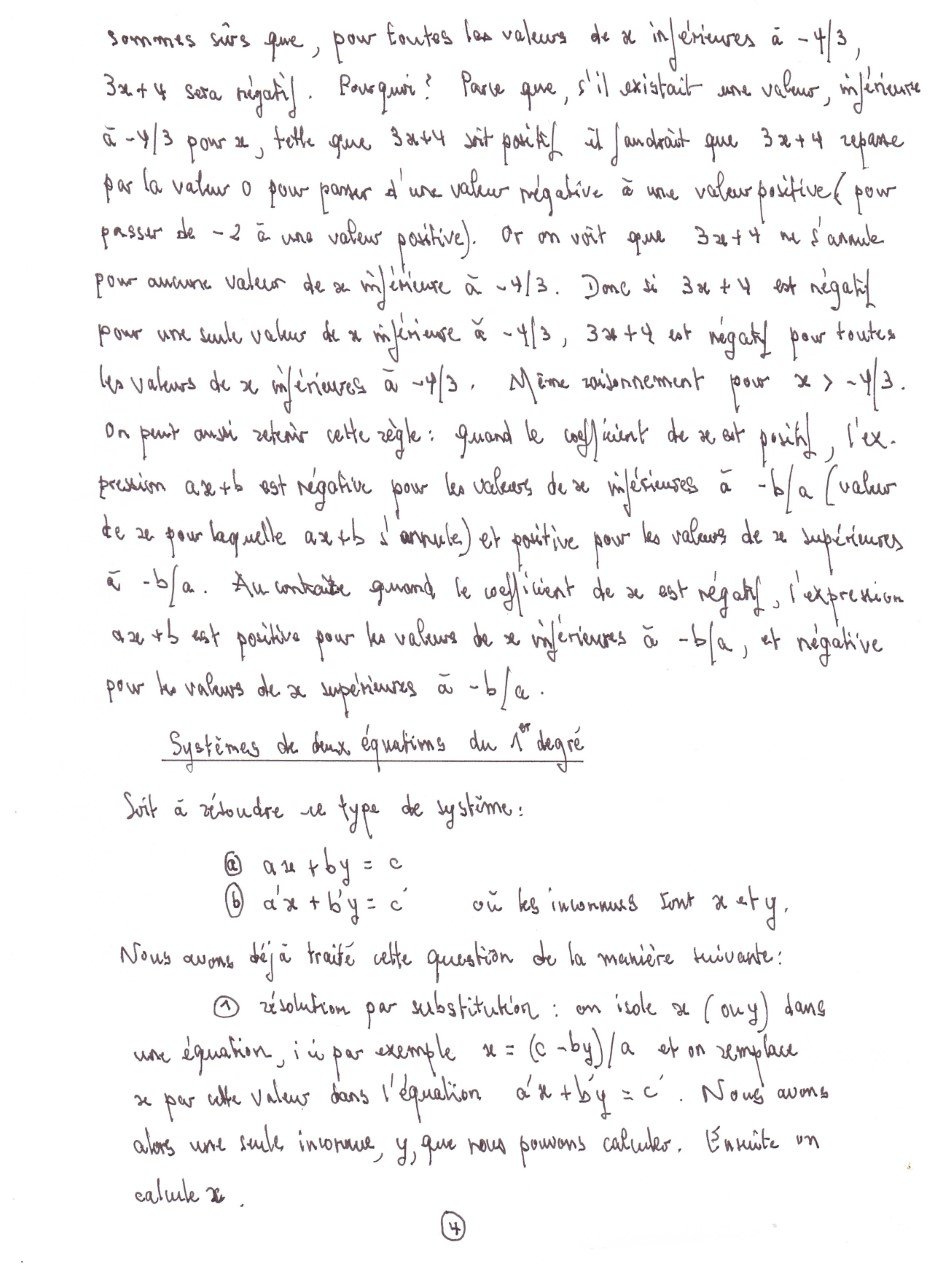 sommes sûrs que, pour toutes les valeurs de x inférieures à -4/3,
3x+4 sera négatif. Pourquoi? Parce que, s'il existait une valeur, inférieure
à -4/3 pour x, telle que 3x+4 soit positif il faudrait que 3x+4 repasse
par la valeur 0 pour passer d'une valeur négative à une valeur positive (pour
passer de -2 à une valeur positive). Or on voit que 3x+4 ne s'annule
pour aucune valeur de x inférieure à -4/3. Donc si 3x+4 est négatif
pour une seule valeur de x inférieure à -4/3, 3x+4 est négatif pour toutes
les valeurs de x inférieures à -4/3. Même raisonnement pour x > -4/3.
On peut aussi retenir cette règle: quand le coefficient de x est positif, l'ex-
pression ax+b est négative pour les valeurs de x inférieures à -b/a (valeur
de x pour laquelle ax+b s'annule) et positive pour les valeurs de x supérieures
à -b/a. Au contraire quand le coefficient de x est négatif, l'expression
ax+b est positive pour les valeurs de x inférieures à -b/a, et négative
pour les valeurs de x supérieures à -b/a.
Systèmes de deux équations du 1er degré
Soit à résoudre ce type de système:
ⓐ ax + by = c
ⓑ a'x + b'y = c' où les inconnues sont x et y.
Nous avons déjà traité cette question de la manière suivante:
① résolution par substitution : on isole x (ou y) dans
une équation, ici par exemple x = (c - by)/a et on remplace
x par cette valeur dans l'équation a'x + b'y = c'. Nous avons
alors une seule inconnue, y, que nous pouvons calculer. Ensuite on
calcule x.
④